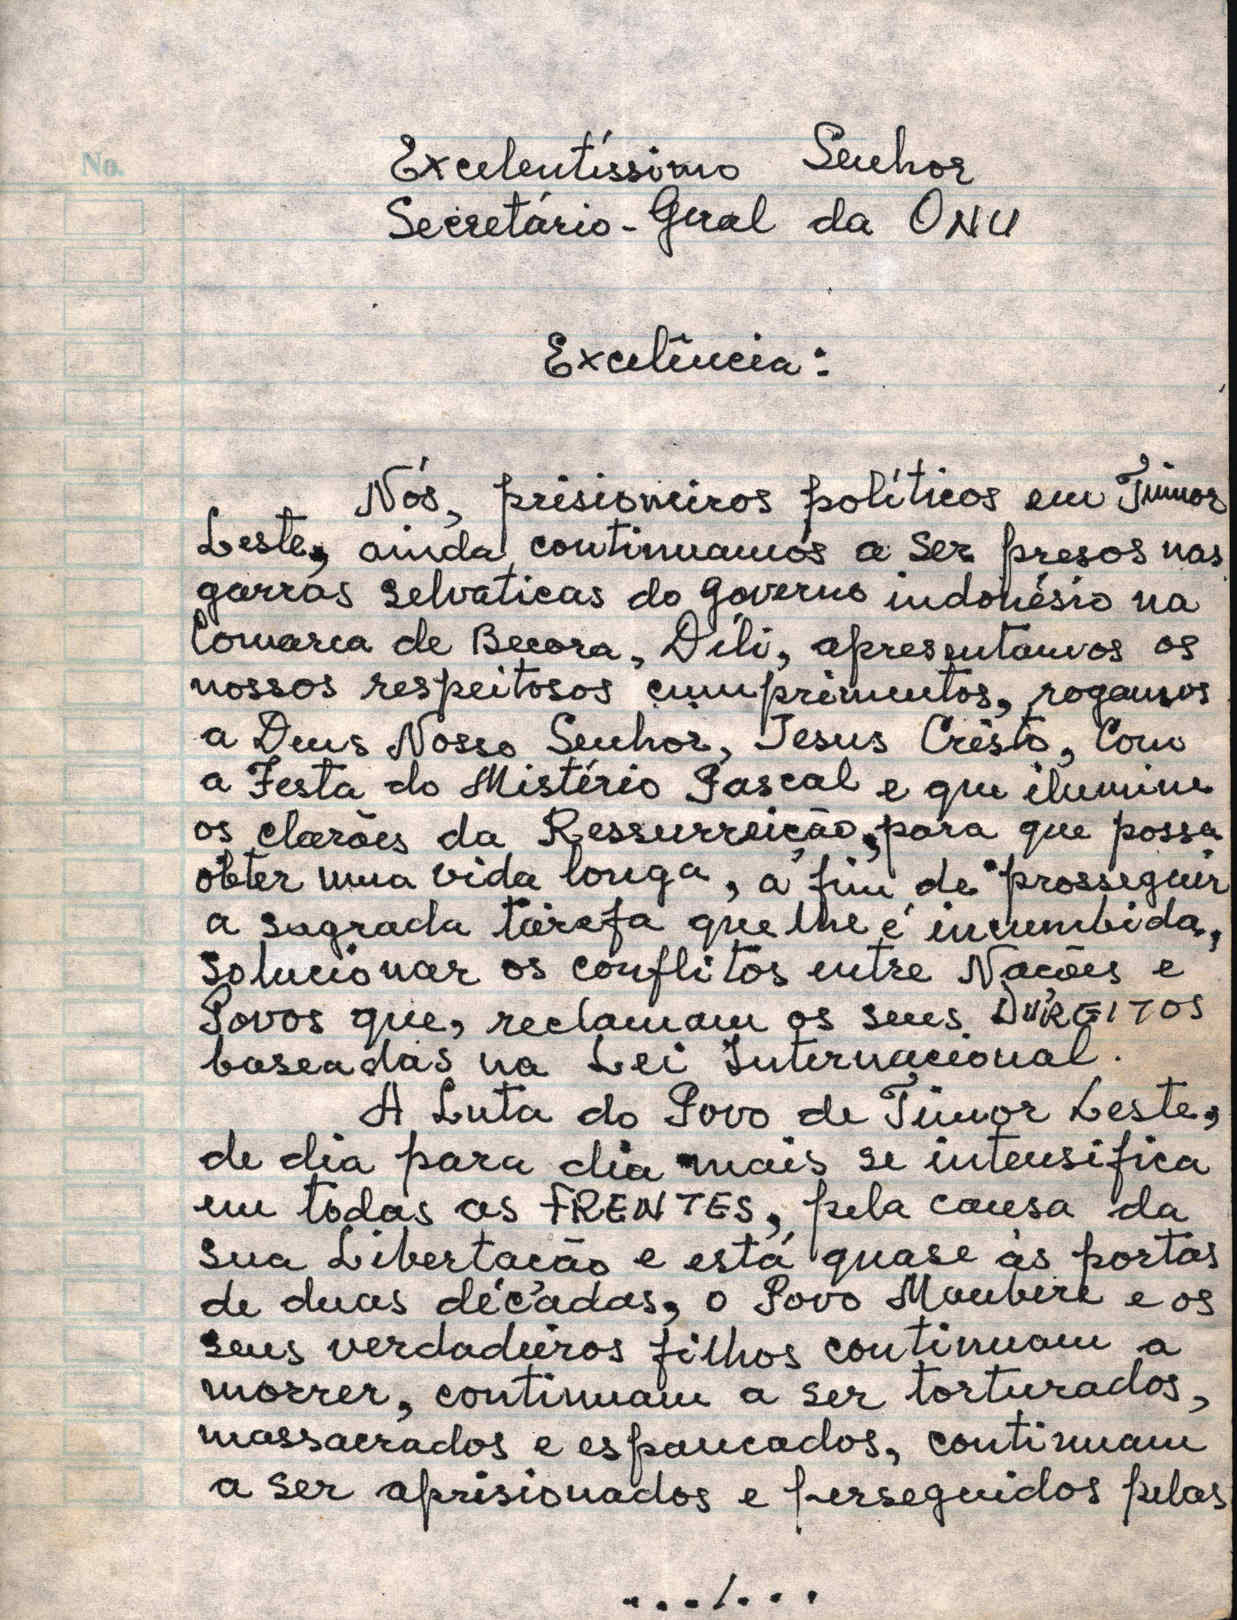 No.
Excelentíssimo Senhor
Secretário-Geral da ONU
Excelência:
Nós, prisioneiros políticos em Timor
Leste, ainda continuamos a ser presos nas
garras selvaticas do governo indonésio na
Comarca de Becora, Díli, apresentamos os
nossos respeitosos cumprimentos, rogamos
a Deus Nosso Senhor, Jesus Cristo, Com
a Festa do Mistério Pascal e que ilumine
os clarões da Ressurreição, para que possa
obter uma vida longa, a fim de prosseguir
a sagrada tarefa que lhe é incumbida,
solucionar os conflitos entre Nações e
Povos que, reclamam os seus DIREITOS
baseadas na Lei Internacional.
A Luta do Povo de Timor Leste,
de dia para dia mais se intensifica
em todas as FRENTES, pela causa da
sua Libertação e está quase às portas
de duas décadas, o Povo Maubere e os
seus verdadeiros filhos continuam a
morrer, continuam a ser torturados,
massacrados e espancados, continuam
a ser aprisionados e perseguidos pelas
.../...